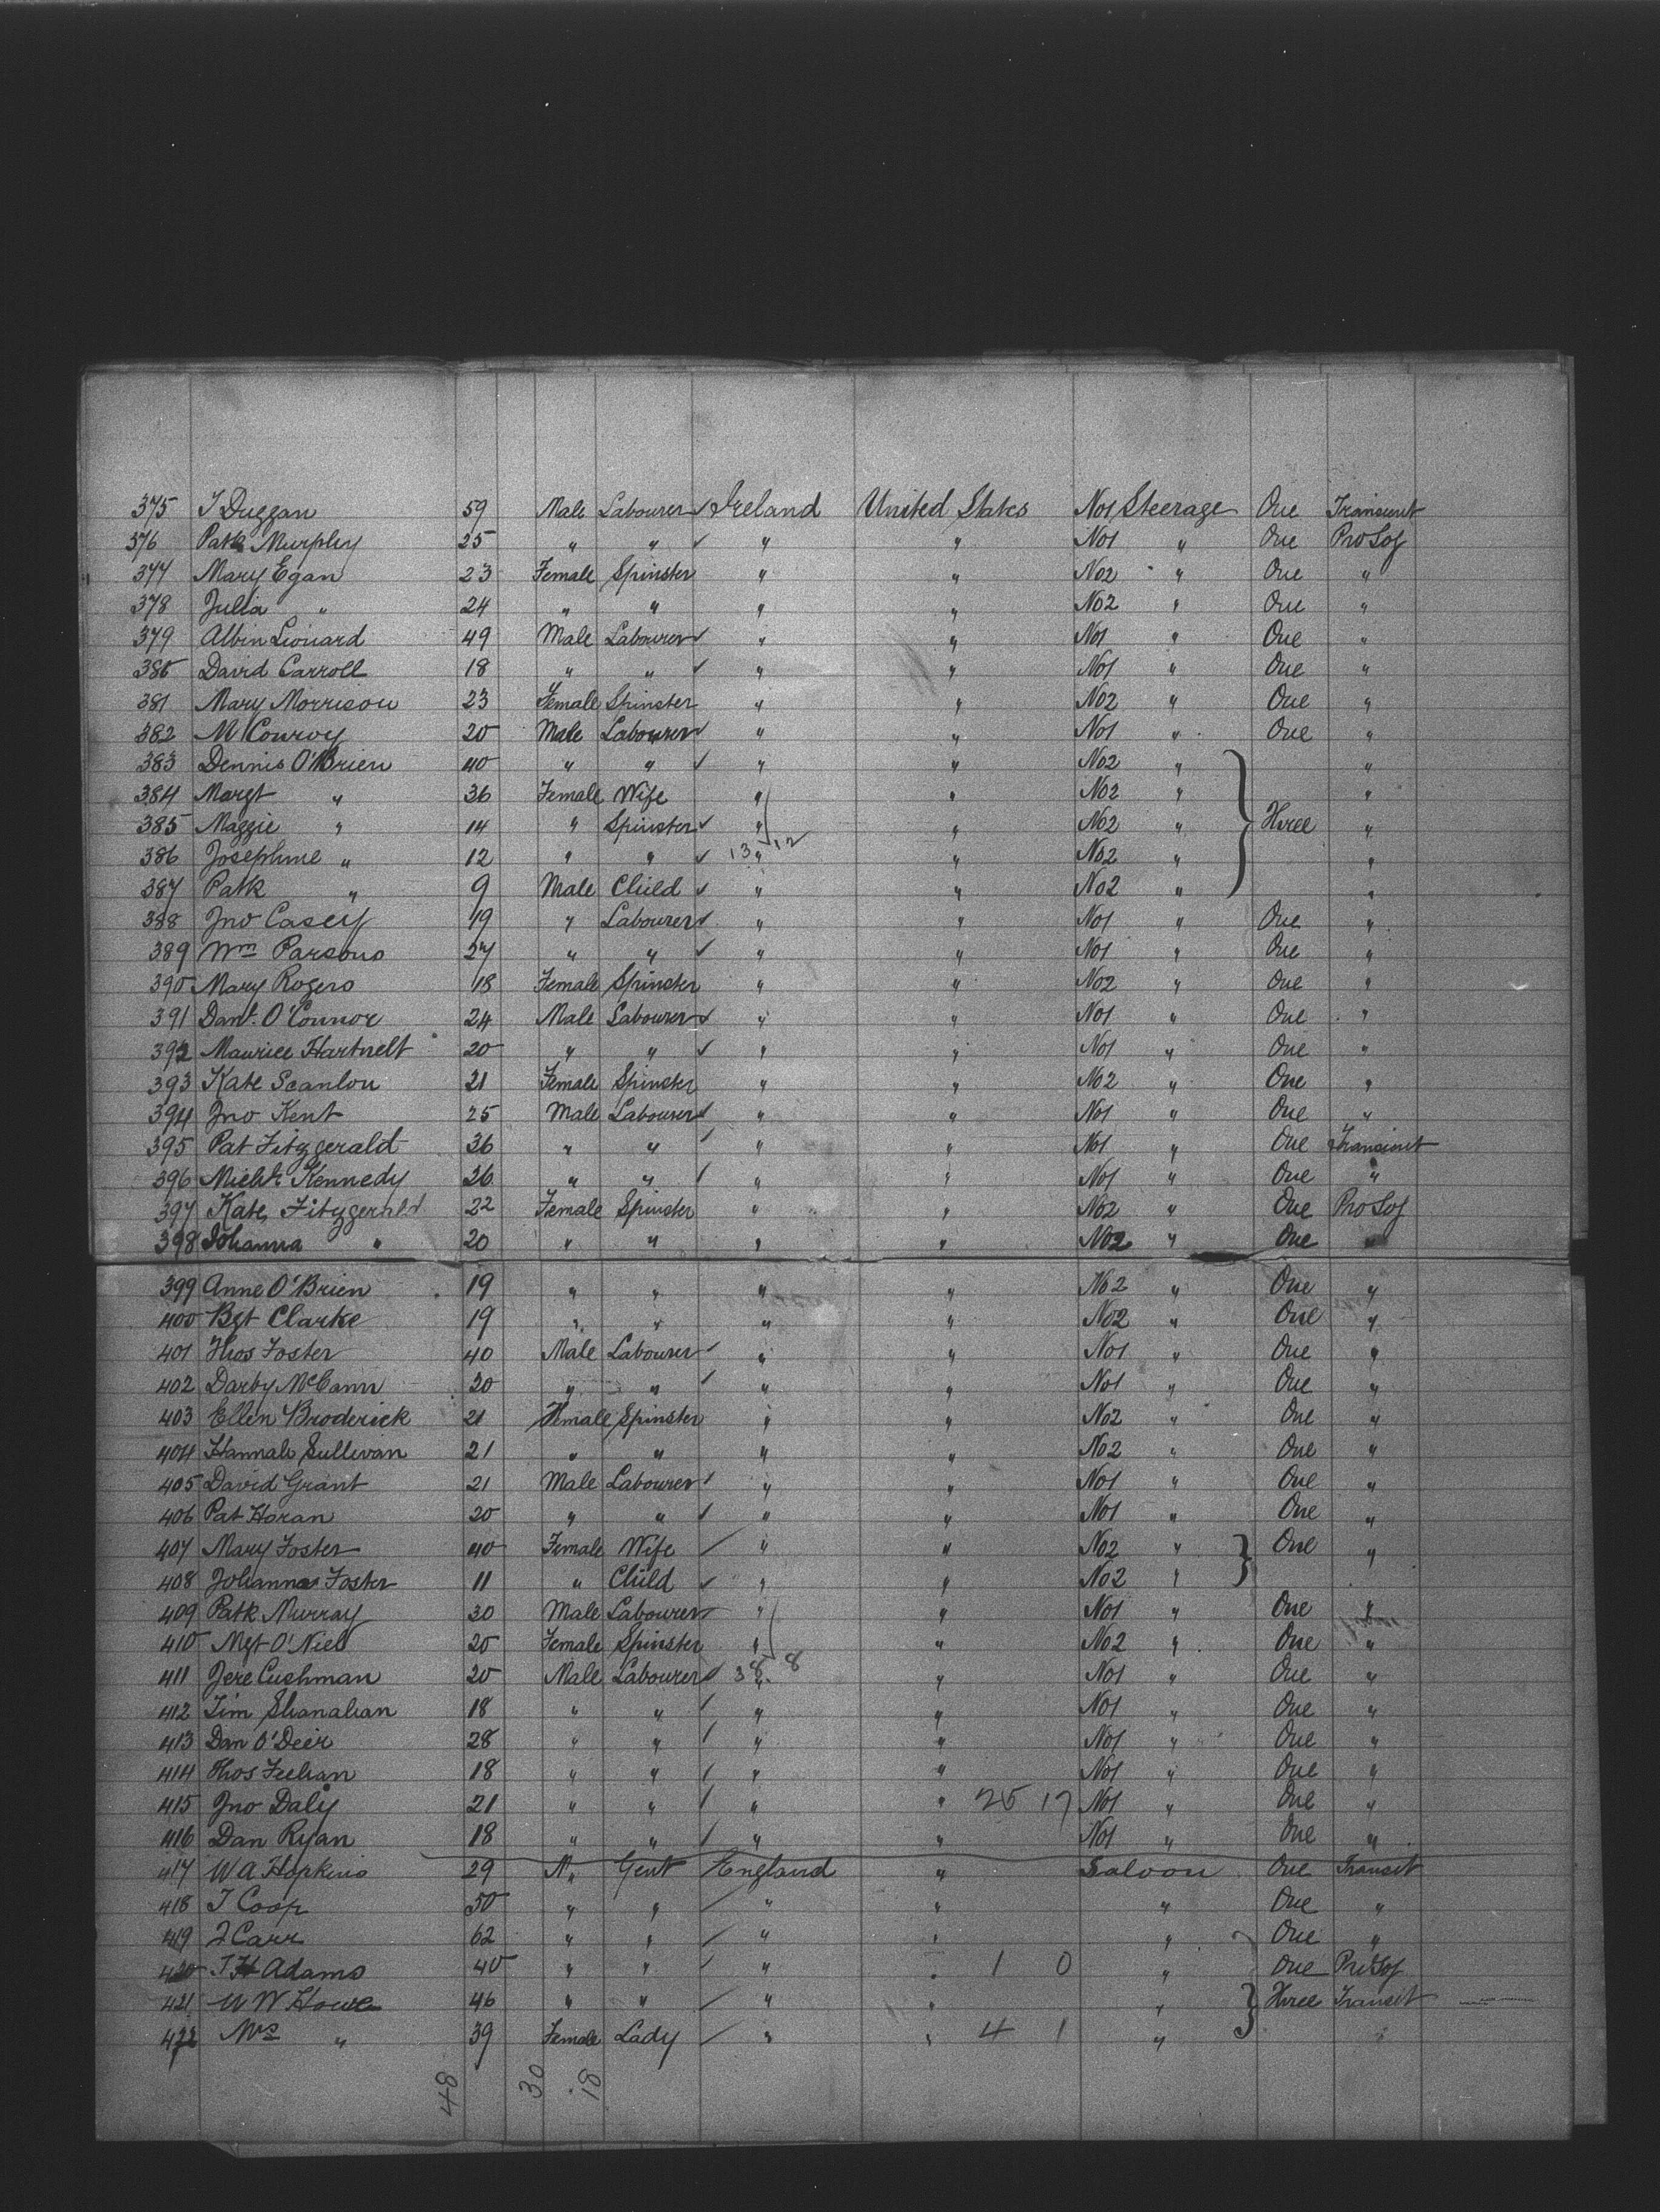 375 T Duggan 59 Male Labourer ✓ Ireland United States No1 Steerage One Transient
376 Patk Murphy 25 " " ✓ " " No1 " One Pro Soj
377 Mary Egan 23 Female Spinster " " No2 " One "
378 Julia " 24 " " " " No2 " One "
379 Albin Lionard 49 Male Labourer ✓ " " No1 " One "
380 David Carroll 18 " " ✓ " " No1 " One "
381 Mary Morrison 23 Female Spinster " " No2 " One "
382 M Conroy 20 Male Labourer ✓ " " No1 " One "
383 Dennis O'Brien 40 " " ✓ " " No2 " "
384 Margt " 36 Female Wife " " No2 " "
385 Maggie " 14 " Spinster ✓ " " No2 " Three "
386 Josephine " 12 " " ✓ 13 " 12 " No2 " "
387 Patk " 9 Male Child ✓ " " No2 " "
388 Jno Casey 19 " Labourer ✓ " " No1 " One "
389 Wm Parsons 27 " " ✓ " " No1 " One "
390 Mary Rogers 18 Female Spinster " " No2 " One "
391 Danl. O'Connor 24 Male Labourer ✓ " " No1 " One "
392 Maurice Hartnett 20 " " ✓ " " No1 " One "
393 Kate Scanlon 21 Female Spinster " " No2 " One "
394 Jno Kent 25 Male Labourer ✓ " " No1 " One "
395 Pat Fitzgerald 36 " " ✓ " " No1 " One Transient
396 Michl. Kennedy 26 " " ✓ " " No1 " One "
397 Kate Fitzgerald 22 Female Spinster " " No2 " One Pro Soj
398 Johanna " 20 " " " " No2 " One "
399 Anne O'Brien 19 " " " " No2 " One "
400 Bgt Clarke 19 " " " " No2 " One "
401 Thos Foster 40 Male Labourer ✓ " " No1 " One "
402 Darby McCann 20 " " ✓ " " No1 " One "
403 Ellen Broderick 21 Female Spinster " " No2 " One "
404 Hannah Sullivan 21 " " " " No2 " One "
405 David Grant 21 Male Labourer ✓ " " No1 " One "
406 Pat Horan 20 " " ✓ " " No1 " One "
407 Mary Foster 40 Female Wife / " " No2 " One "
408 Johanna Foster 11 " Child ✓ " " No2 "
409 Patk Murray 30 Male Labourer " " No1 " One "
410 Mgt O'Niel 20 Female Spinster " " No2 " One "
411 Jere Cushman 20 Male Labourer ✓ 38 " 8 " No1 " One "
412 Tim Shanahan 18 " " / " " No1 " One "
413 Dan O'Deer 28 " " / " " No1 " One "
414 Thos Feehan 18 " " / " " No1 " One "
415 Jno Daly 21 " " / " " 25 17 No1 " One "
416 Dan Ryan 18 " " / " " No1 " One "
417 W A Hopkins 29 M" Gent England " Saloon One Transit
418 T Coop 50 " " / " " " One "
419 J Carr 62 " " / " " " One "
420 J H Adams 40 " " / " " 1 0 " One Pro Soj
421 W W Howe 46 " " / " " " Three Transit
422 Mrs " 39 Female Lady / " " 4 1 " "
48 30 18